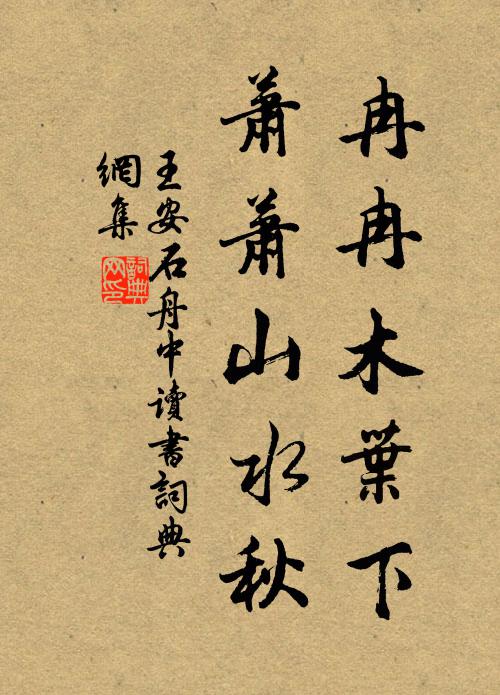 冉冉木葉下
蕭蕭山水秋
王安石舟中讀書詞典
網集
詞典
网印